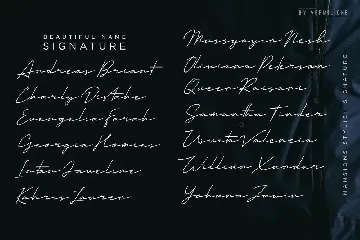 BY VEFMALICHE
BEAUTIFUL NAME
SIGNATURE
Andreas Briant
Charly Distabe
Evangelia Sarah
Georgia Homies
Intan Javeline
Kahres Lauren
Nesh
Oliviana Peterson
Queen Raisani
Samantha Tinder
Usuita Valencia
William Xander
Yohana Zovin
MANSIONS STYLISH SIGNATURE